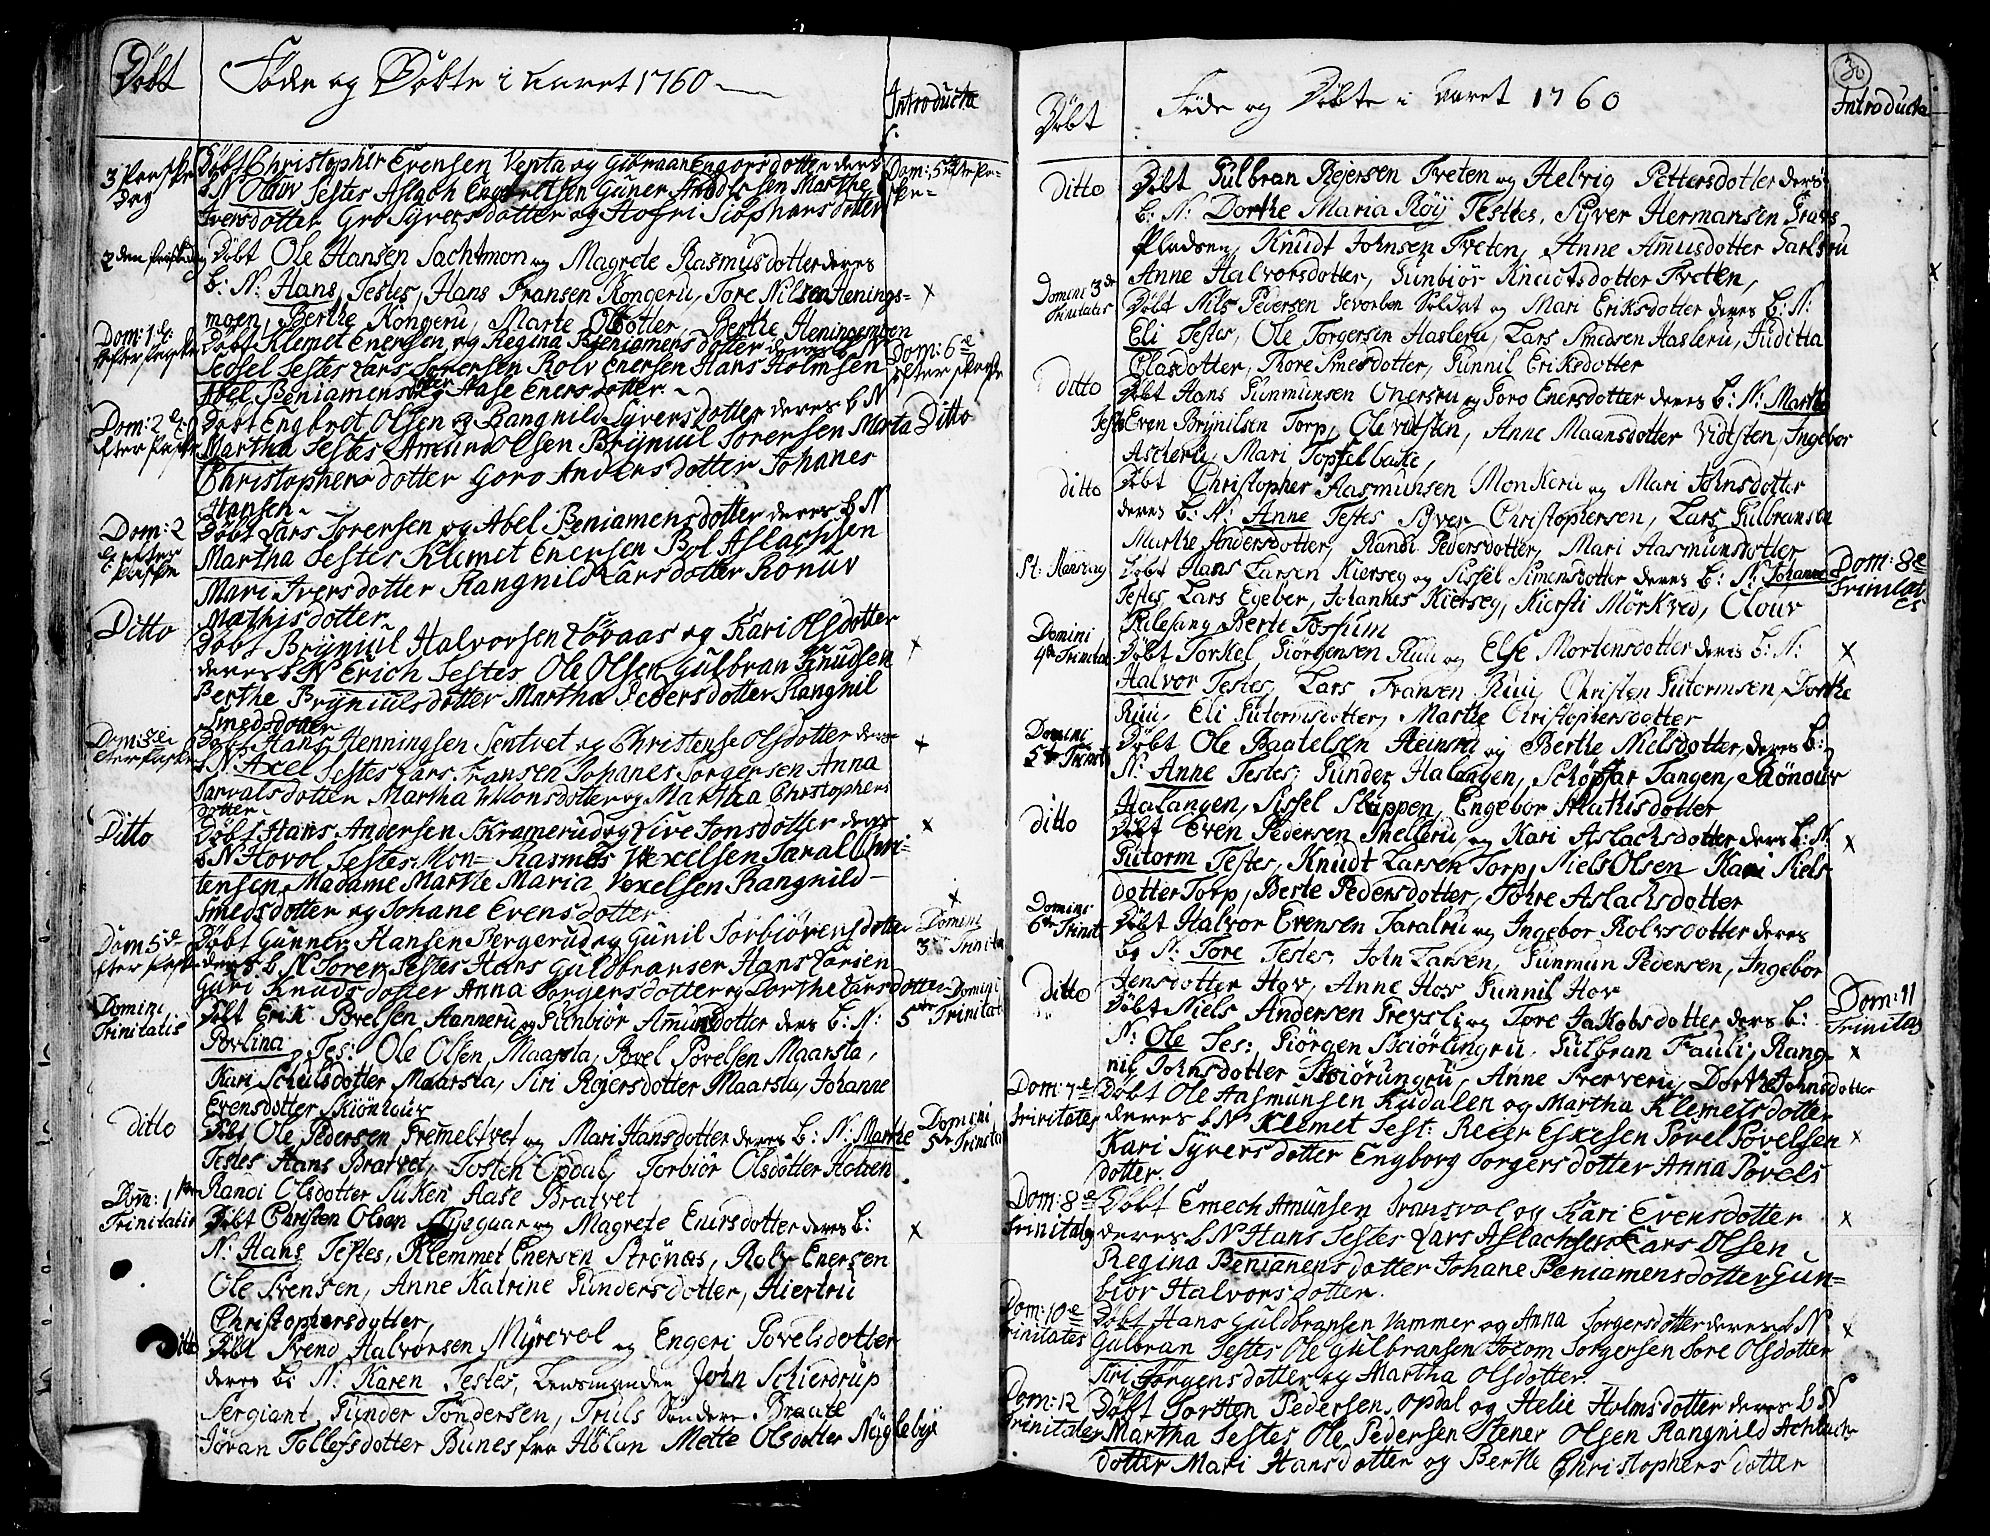 Døbt
Føde og Døbte i Aaret 1760
Introducta
3 Paaske Dag
Døbt Christopher Evensen Venta og Gunnaan Engersdotter deres
b N Oluv Testes Aslach Engebretsen Guner Andersen Marthe
Iversdotter Gro Syversdotter og Stofri Siophersdotter
Dom: 5 Efter Pa-
ske-
2den Paaskedag
Døbt Ole Hansen Sachtmon og Magrete Rasmusdotter deres
b: N: Hans, Testes, Hans Fransen Kongeru, Tore Nilsen Henings-
moen, Berthe Kongeru, Marte Olsdotter, Berthe Heningsmoen
x
Dom: 1 e:
Efter Paaske
Døbt Klemet Enersen og Regina Beniamensdotter deres b N
Sedsel Testes Lars Torersen Rolv Enersen Hans Holmsen
Abel Beniamensdotter Aase Enersdotter
Dom: 6te
Efter Paaske
Dom: 2 e
Efter Paske
Døbt Engbret Olsen og Rangnild Syversdotter deres b N
Martha Testes Amund Olsen Brynuil Torersen Marta
Christophersdotter Goro Andersdotter Johanes
Hansen
Ditto
Dom: 2
e: efter
paaske
Døbt Lars Torersen og Abel Beniamensdotter deres b N
Martha Testes Klemet Enersen Bol Aslachsen
Mari Iversdotter Rangnild Larsdotter Ronuv
Mathisdotter
Ditto
Døbt Brynuil Halvorsen Løvaas og Kari Olsdotter
deres b N Erich Testes Ole Olsen Gulbran Knudsen
Berthe Brynuilsdotter Martha Pedersdotter Rangnil
Smedsdotter
x
Dom: 3 e:
Efter Paske
Døbt Hans Henningsen Sentvet og Christense Olsdotter deres
b N Axel Testes Lars Fransen Johanes Torgersen Anna
Tarvalsdotter Martha Monsdotter og Martha Christophers
dotter
x
Ditto
Døbt Hans Andersen Kramerud og Sire Jonsdotter deres
b N Hovol Testes: Mon= Rasmus Wexelsen Taral Chri-
stensen Madame Marthe Maria Vexelsen Rangnild
Smedsdotter og Johane Evensdotter
x
Dom 5 de
Efter Paske
Døbt Gunner Hansen Bergerud og Gunil Torbiørensdotter
deres b N Torer Testes Hans Guldbransen Hans Larsen
Guri Knudsdotter Anna Torgersdotter og Dorthe Larsdotter
x
Domini
3 Trinita
Domini
Trinitatis
Døbt Erik Povelsen Hanneru og Gunbiør Amundsdotter deres b: N:
Povlina, Tes: Ole Olsen, Maarsta, Povel Povelsen Maarsta,
Kari Schulsdotter Maarsta, Siri Rejersdotter Maarsta, Johanne
Evensdotter Skiønhour
Domini
5te Trinitat
ditto
Døbt Ole Pedersen Tremeltvet og Mari Hansdotter deres b: N: Marthe
Testes Hans Bratvet, Tosten Opdal, Torbiør Olsdotter Holten
Randi Olsdotter Suken Aase Bratvet
Domini
5te Trinita
Dom: 1
Trinitatis
Døbt Christen Olsen og Magrete Enersdotter deres b:
N: Hans, Testes, Klemmet Enersen Strønæs, Rolv Enersen
Ole Svensen, Anne Katrine Gundersdotter, Hiertru
Christophersdotter,
x
Ditto
Døbt Svend Halvorsen Myrevol og Engeri Povelsdotter
deres b: N: Karen Testes, Lensmanden John Schierdrup
Sergiant Gunder Tøndersen, Truls Søndere Braate
Jøran Tollefsdotter Bunes fra Hølan Mette Olsdotter Nøglebye
Døbt
Føde og Døbte i Aaret 1760
Introducta
30
Ditto
Døbt Gulbran Rejersen Tveten og Helvig Pettersdotter deres
b: N: Dorthe Maria Røy Testes, Syver Hermansen Graves
Pladsen, Knudt Johnsen Tveten, Anne Amusdotter Garlseru
Anne Halvorsdotter, Gunbiør Knudtsdotter Tveten,
Domini 3de
Trinitatis
Døbt Nils Pedersen Sevorben Soldat og Mari Eriksdotter deres b: N:
Eli Testes, Ole Torgersen Hasleru, Lars Smedsen Hasleru, Juditta
Olasdotter, Thore Smesdotter, Gunnil Eriksdotter
ditto
Døbt Hans Gunmunsen Onersru og Goro Enersdotter deres b: N: Marthe
Testes Even Brynilsen Torp, Ole Vidtsten, Anne Maansdotter Vidtsten, Ingebor
Ascheru, Mari Topselbake,
ditto
Døbt Christopher Aasmunsen Monkeru og Mari Johnsdotter
deres b: N: Anne Testes Syver Christophersen, Lars Gulbransen
Marthe Andersdotter, Randi Pedersdotter, Mari Aasmunsdotter
St: Hansdag
Døbt Hans Larsen Kierseg og Sissel Simensdotter deres b: N: Johannes
Testes, Lars Egeber, Johannes Kierseg, Kiersti Mørkved, Olouv
Rilesang Berte Fossum
Dom: 8e
Trinitat
es
Domini
4de Trinitat
Døbt Torkel Giørgensen Ruu og Else Mortensdotter deres b: N:
Halvor Testes, Lars Fransen Ruu, Christen Gutormsen, Dorthe
Ruu, Eli Gutormsdotter, Marthe Christophersdotter
x
Domini
5te Trinit
Døbt Ole Baatelsen Steinsru og Berthe Nielsdotter, deres b:
N: Anne Testes: Gunder Halangen, Schøpfar Tangen, Rønouv
Halangen, Sissel Slappen, Engebor Mathisdotter
ditto
Døbt Even Pedersen Snelleru og Kari Aslachsdotter deres b: N:
Gutorm Testes, Knudt Larsen Torp, Niels Olsen Kari Niels-
dotter Torp, Berte Pedersdotter, Tohre Aslachsdotter
x
Domini
6te Trinit
Døbt Halvor Evensen Taralru og Ingebor Rolvsdotter deres
b: N: Tore Testes, John Larsen, Gunmun Pedersen, Ingebor
Jensdotter Hov, Anne Hov Gunnil Hov
ditto
Døbt Niels Andersen Freysli og Tore Jakobsdotter deres b:
N: Ole Tes: Giørgen Skiørungru, Gulbran Fauli, Rang-
nil Johnsdotter Skiørungru, Anne Prerveru, Dorthe Johnsdotter
Dom: 11
Trinitas
x
Dom: 7e
Trinitates
Døbt Ole Aasmunsen Kudalen og Martha Klemetsdotter
deres b N Klemet Test: Reer Eskesen Povel Povelsen
Kari Syversdotter Engborg Torgersdotter Anna Povels
dotter.
x
Dom: 8e
Trinitas
Døbt Emech Amunsen Transvol og Kari Evensdotter
deres b N Hans Testes Lars Aslachsen Lars Olsen
Regina Benianensdotter Johane Beniamensdotter Gun=
biør Halvorsdotter.
x
Dom: 10e
Trinitates
Døbt Hans Guldbransen Vammer og Anna Torgersdotter deres b N
Gulbran Testes Ole Gulbransen Jocom Torgersen Tore Olsdotter
Siri Jørgensdotter og Martha Olsdotter.
x
Dom: 12
Trinitates
Døbt Torsten Pedersen Opdal og Helie Holmsdotter deres b N
Martha Testes Ole Pedersen Stener Olsen Rangnild Achelachs
dotter Mari Hansdotter og Berthe Christophersdotter